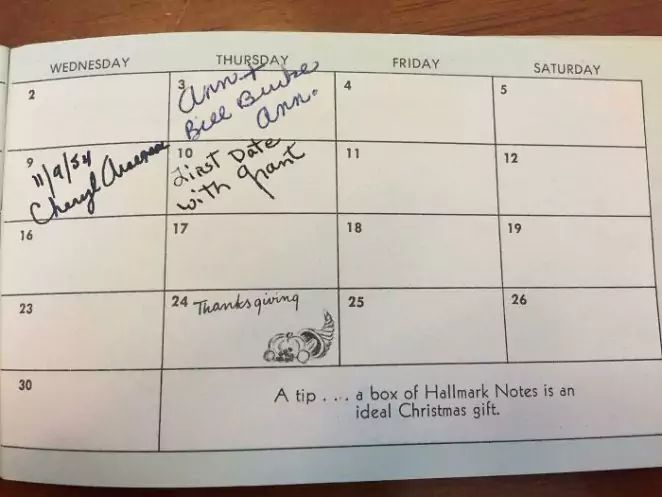 WEDNESDAY THURSDAY FRIDAY SATURDAY
2 3 4 5
Ann +
Bill Burke
Ann.
9 10 11 12
11/9/54
Cheryl
First Date
with Grant
16 17 18 19
23 24 Thanksgiving 25 26
30
A tip . . . a box of Hallmark Notes is an
ideal Christmas gift.